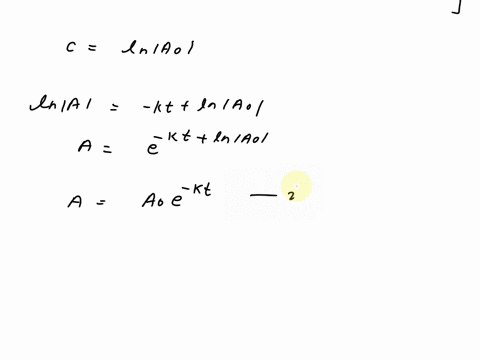 ]
c = ln|A0|
ln|A| = -kt + ln|A0|
A = e^{-kt + ln|A0|}
A = A0 e^{-kt} — 2